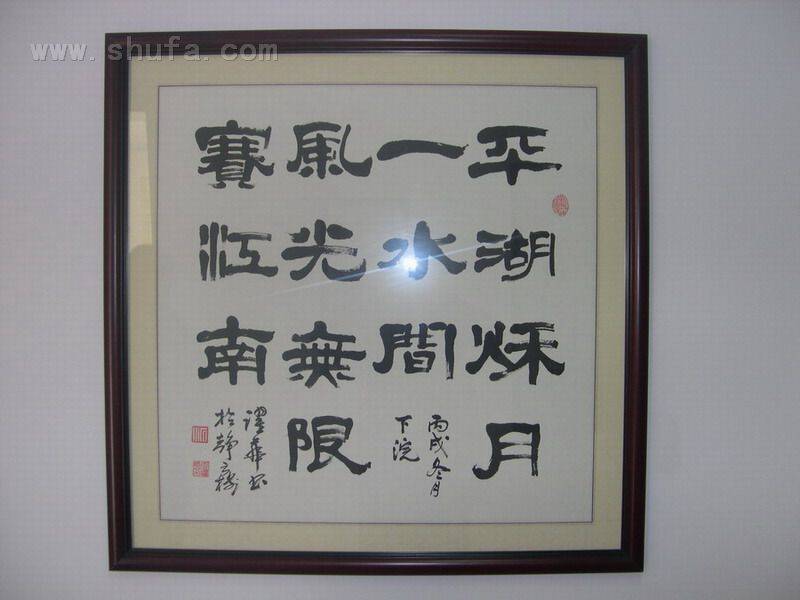 www.shufa.com
平湖秌月
一水間
風光無限
賽江南
丙戌冬月
下浣
於静